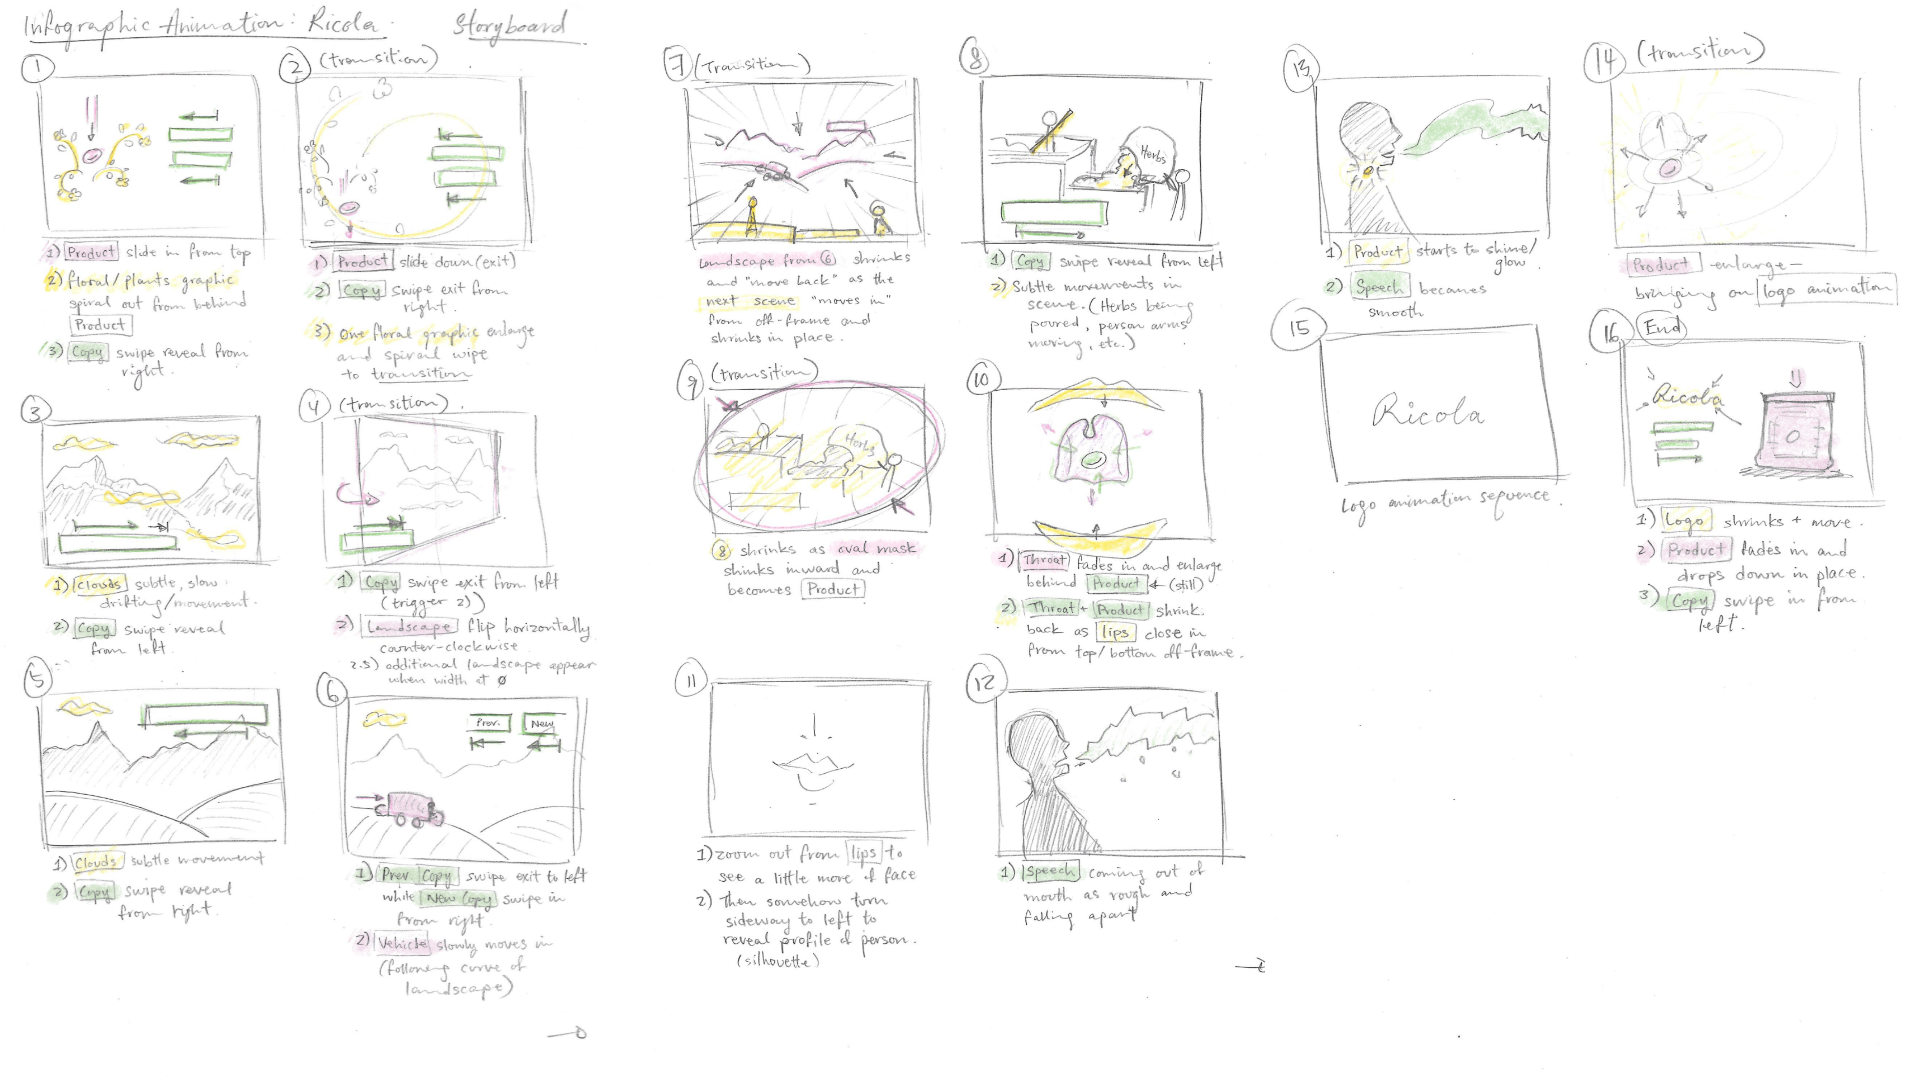 Infographic Animation: Ricola.
Storyboard
1
1) Product slide in from top
2) floral/plants graphic
spiral out from behind
Product
3) Copy swipe reveal from
right.
2 (transition)
1) Product slide down (exit)
2) Copy swipe exit from
right.
3) One floral graphic enlarge
and spiral wipe
to transition
3
1) Clouds subtle, slow
drifting/movement.
2) Copy swipe reveal
from left.
4 (transition).
1) Copy swipe exit from left
(trigger 2))
2) Landscape flip horizontally
counter-clockwise
2.5) additional landscape appear
when width at 0
5
1) Clouds subtle movement
2) Copy swipe reveal
from right.
6
Prev. New
1) Prev. Copy swipe exit to left
while New Copy swipe in
from right.
2) Vehicle slowly moves in
(following curve of
landscape)
7 (Transition)
Landscape from 6 shrinks
and "move back" as the
next scene "moves in"
from off-frame and
shrinks in place.
8
Herbs
1) Copy swipe reveal from left
2) Subtle movements in
scene. (Herbs being
poured, person arms
moving, etc.)
9 (transition)
Herbs
8 shrinks as oval mask
shinks inward and
becomes Product
10
1) Throat fades in and enlarge
behind Product (still)
2) Throat + Product shrink
back as lips close in
from top/bottom off-frame.
11
1) zoom out from lips to
see a little more of face
2) Then somehow turn
sideway to left to
reveal profile of person.
(silhouette)
12
1) Speech coming out of
mouth as rough and
falling apart
13
1) Product starts to shine/
glow
2) Speech becomes
smooth
14 (transition)
Product enlarge -
bringing on logo animation
15
Ricola
Logo animation sequence.
16 End
Ricola
1) Logo shrinks + move.
2) Product fades in and
drops down in place.
3) Copy swipe in from
left.